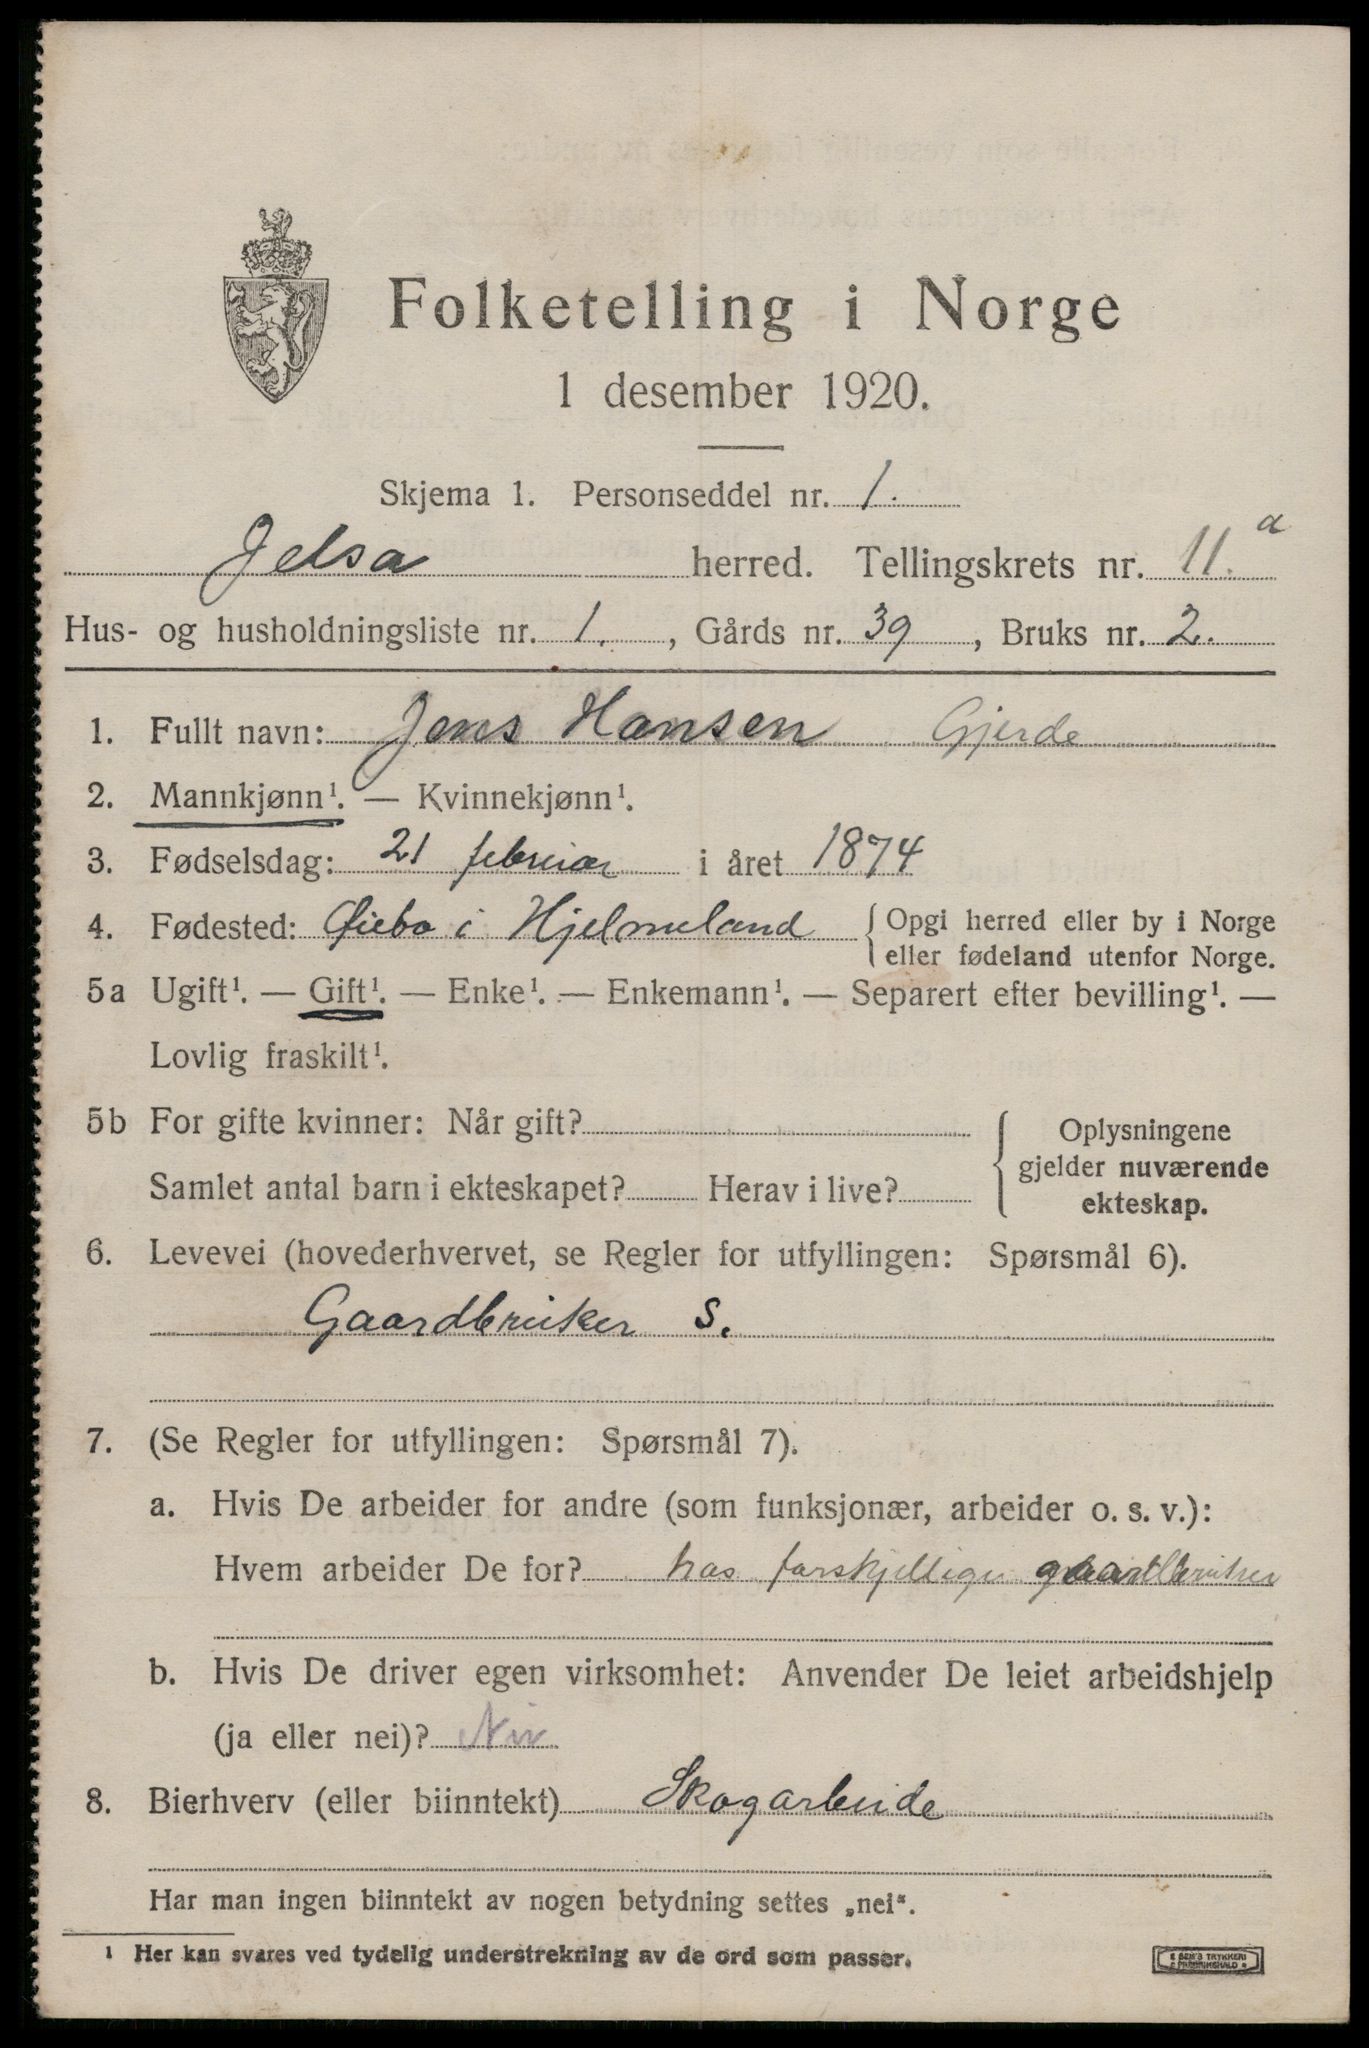 Folketelling i Norge
1 desember 1920.
Skjema 1. Personseddel nr. 1.
Jelsa herred. Tellingskrets nr. 11. a
Hus- og husholdningsliste nr. 1. , Gårds nr. 39 , Bruks nr. 2.
1. Fullt navn: Jens Hansen Gjerde
2. Mannkjønn¹. — Kvinnekjønn¹.
3. Fødselsdag: 21 februar i året 1874
4. Fødested: Øiebø i Hjelmeland { Opgi herred eller by i Norge
eller fødeland utenfor Norge.
5a Ugift¹. — Gift¹. — Enke¹. — Enkemann¹. — Separert efter bevilling¹. —
Lovlig fraskilt¹.
5b For gifte kvinner: Når gift?
Samlet antal barn i ekteskapet? Herav i live?
{ Oplysningene
gjelder nuværende
ekteskap.
6. Levevei (hovederhvervet, se Regler for utfyllingen: Spørsmål 6).
Gaardbruker S.
7. (Se Regler for utfyllingen: Spørsmål 7).
a. Hvis De arbeider for andre (som funksjonær, arbeider o. s. v.):
Hvem arbeider De for? hos forskjellige gaardbruker
b. Hvis De driver egen virksomhet: Anvender De leiet arbeidshjelp
(ja eller nei)? Nei
8. Bierhverv (eller biinntekt) Skogarbeide
Har man ingen biinntekt av nogen betydning settes „nei“.
¹ Her kan svares ved tydelig understrekning av de ord som passer.